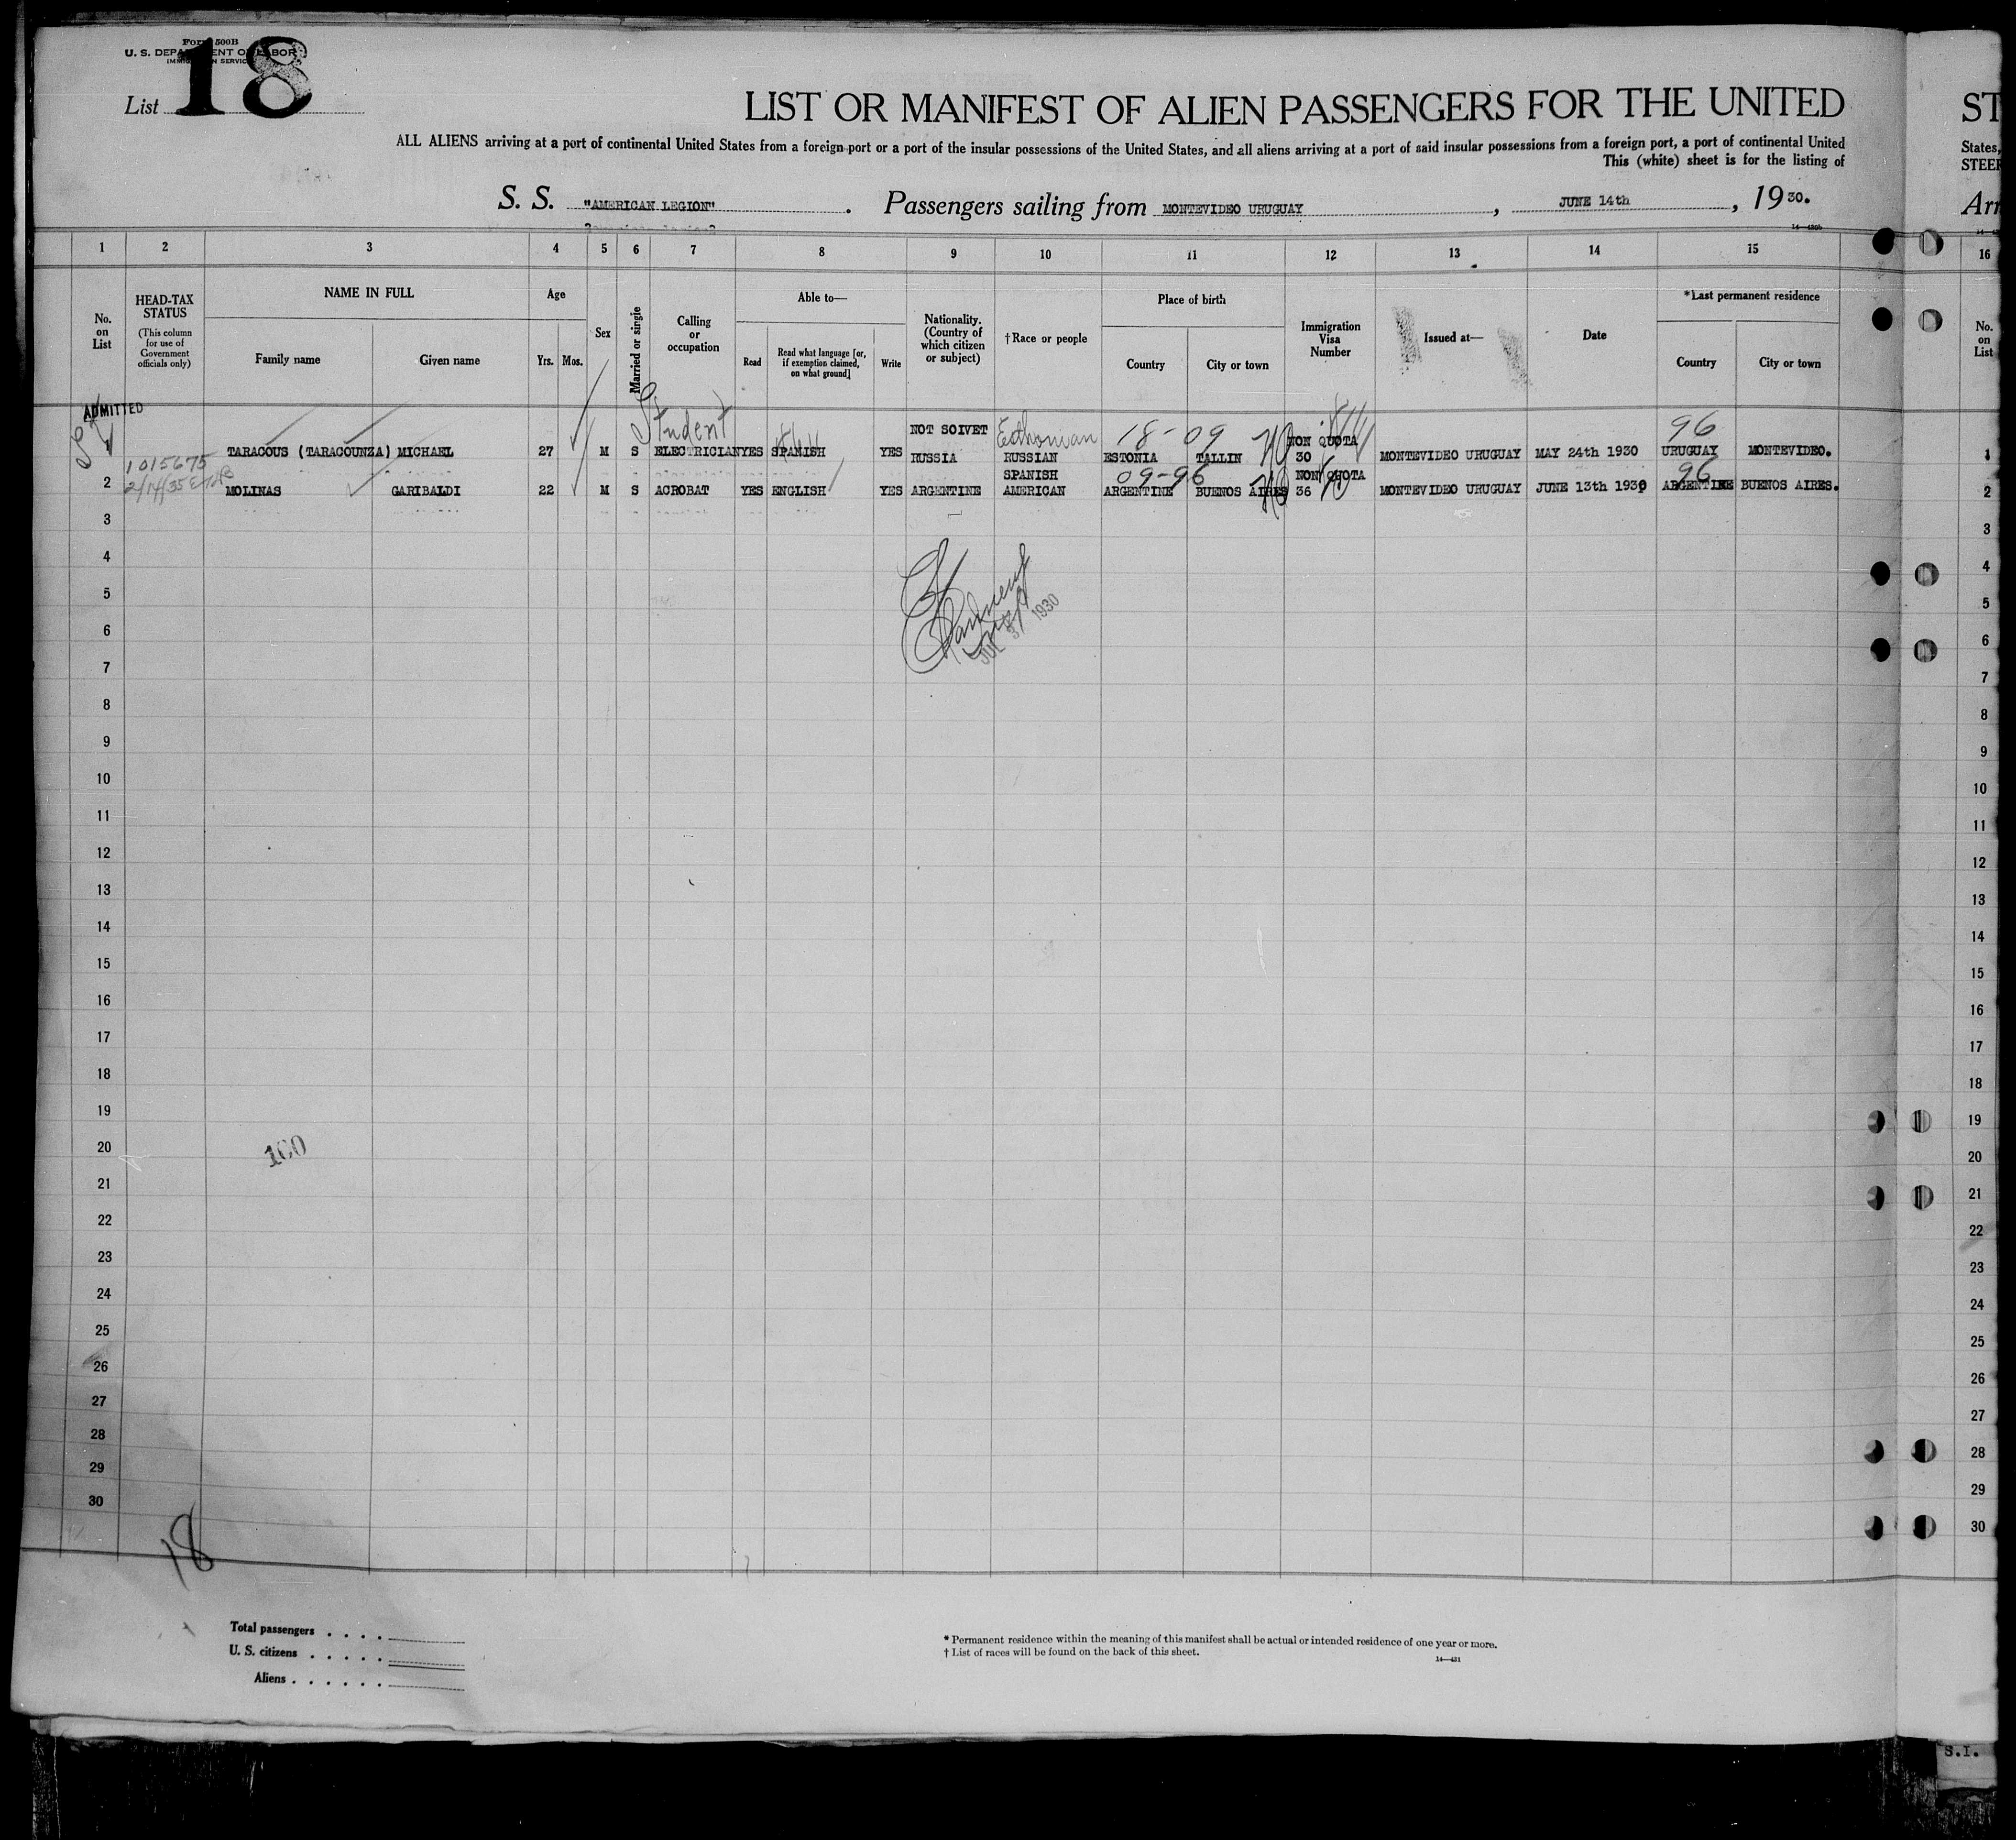 Form 500B
U. S. DEPARTMENT OF LABOR
IMMIGRATION SERVICE
List 18
LIST OR MANIFEST OF ALIEN PASSENGERS FOR THE UNITED
ST
ALL ALIENS arriving at a port of continental United States from a foreign port or a port of the insular possessions of the United States, and all aliens arriving at a port of said insular possessions from a foreign port, a port of continental United
States,
This (white) sheet is for the listing of
STEER
S. S. "AMERICAN LEGION". Passengers sailing from MONTEVIDEO URUGUAY, JUNE 14th, 1930.
Arr
1 2 3 4 5 6 7 8 9 10 11 12 13 14 15 16
No. on List
HEAD-TAX STATUS
(This column for use of Government officials only)
NAME IN FULL
Family name Given name
Age
Yrs. Mos.
Sex
Married or single
Calling or occupation
Able to—
Read
Read what language [or, if exemption claimed, on what ground]
Write
Nationality. (Country of which citizen or subject)
†Race or people
Place of birth
Country City or town
Immigration Visa Number
Issued at—
Date
*Last permanent residence
Country City or town
No. on List
ADMITTED
Student NOT SOIVET Esthonian 18-09 NON QUOTA 96
TARACOUS (TARACOUNZA) MICHAEL 27 M S ELECTRICIAN YES SPANISH YES RUSSIA RUSSIAN ESTONIA TALLIN 30 MONTEVIDEO URUGUAY MAY 24th 1930 URUGUAY MONTEVIDEO. 1
1015675 SPANISH 09-96 NON QUOTA 96
2/14/35
2 MOLINAS GARIBALDI 22 M S ACROBAT YES ENGLISH YES ARGENTINE AMERICAN ARGENTINE BUENOS AIRES 36 MONTEVIDEO URUGUAY JUNE 13th 1930 ARGENTINE BUENOS AIRES. 2
3 3
4 4
5 5
JUL 1930
6 6
7 7
8 8
9 9
10 10
11 11
12 12
13 13
14 14
15 15
16 16
17 17
18 18
19 19
20 100 20
21 21
22 22
23 23
24 24
25 25
26 26
27 27
28 28
29 29
30 30
18
Total passengers . . . .
U. S. citizens . . . . .
Aliens . . . . . .
* Permanent residence within the meaning of this manifest shall be actual or intended residence of one year or more.
† List of races will be found on the back of this sheet.
14—431
S.I.